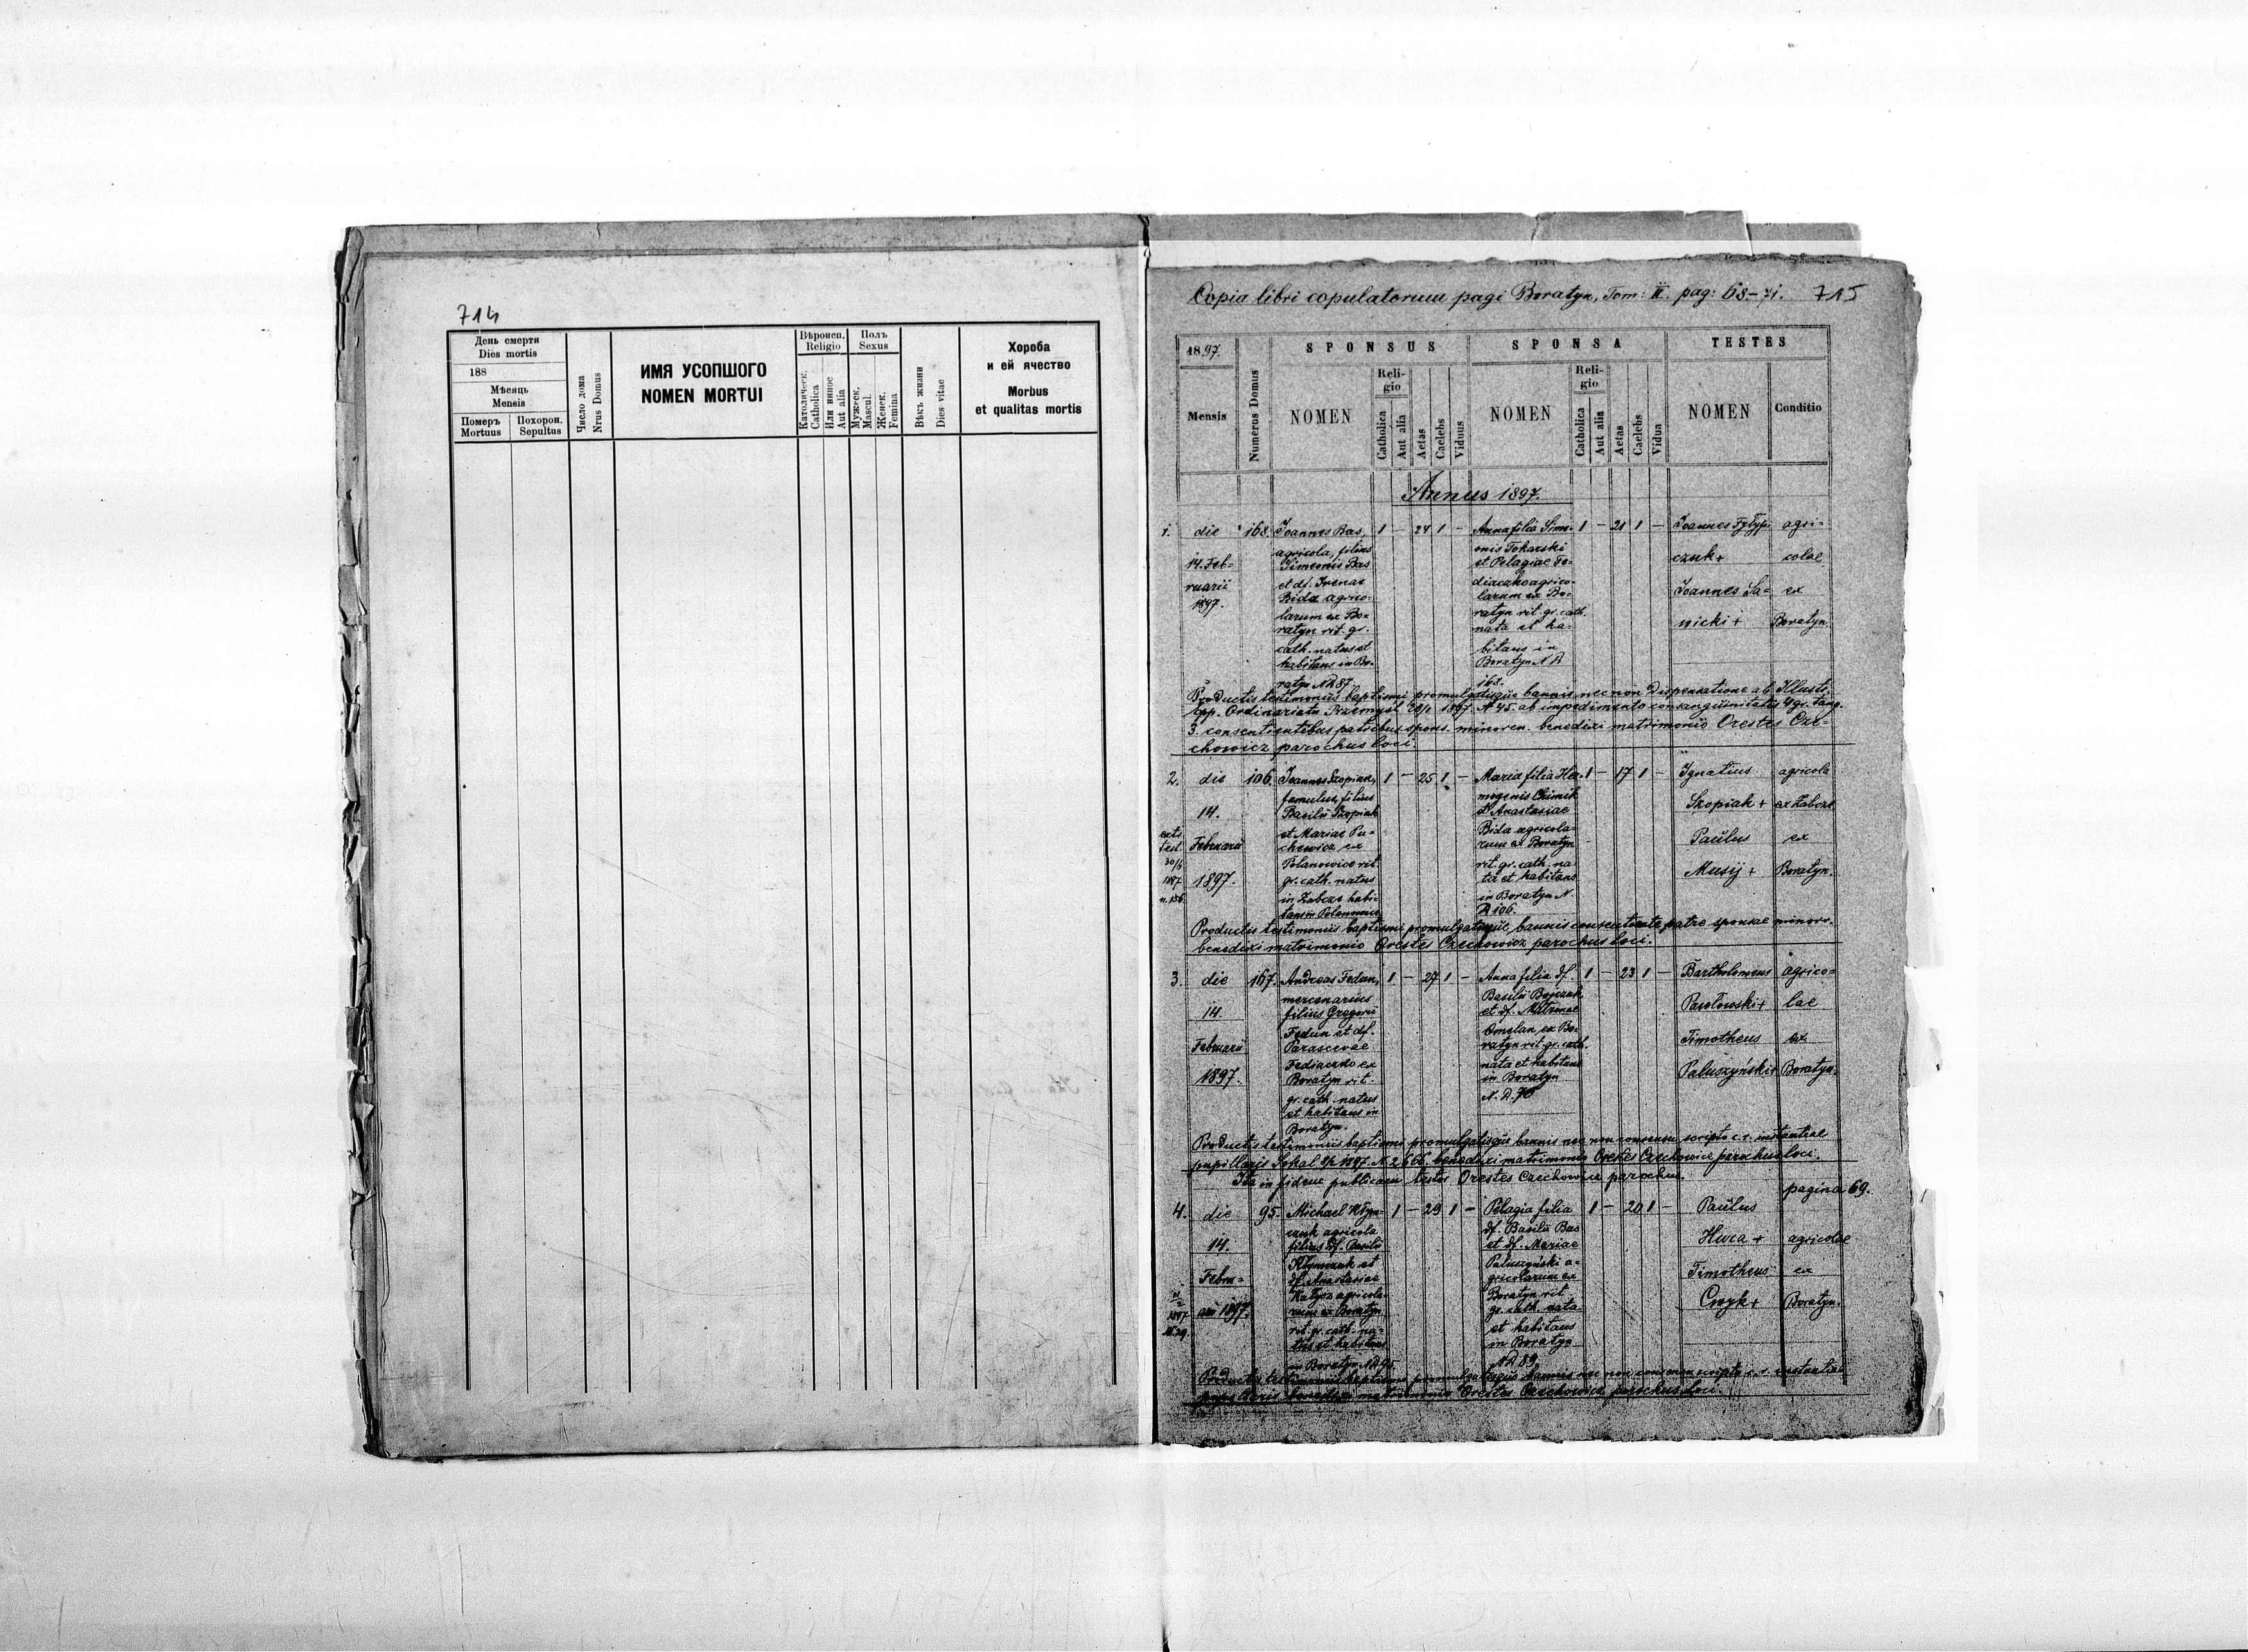 714
День смерти
Dies mortis
188
Мѣсяць
Mensis
Померъ
Mortuus
Похорон.
Sepultus
Число дома
Nrus Domus
ИМЯ УСОПШОГО
NOMEN MORTUI
Вѣроисп.
Religio
Католическ.
Catholica
Или инное
Aut alia
Полъ
Sexus
Мужеск.
Mascul.
Женск.
Femina
Вѣкъ жизни
Dies vitae
Хороба
и ей ячество
Morbus
et qualitas mortis
Copia libri copulatorum pagi Boratyn, Tom: II. pag: 68-71. 715
1897.
Mensis
Numerus Domus
SPONSUS
NOMEN
Reli-
gio
Catholica
Aut alia
Aetas
Caelebs
Viduus
SPONSA
NOMEN
Reli-
gio
Catholica
Aut alia
Aetas
Caelebs
Vidua
TESTES
NOMEN
Conditio
Annus 1897.
1.
die
14. Feb-
ruarii
1897.
168.
Joannes Bas,
agricola, filius
Simeonis Bas
et df. Irenae
Bida agrico-
larum ex Bo-
ratyn rit. gr.
cath. natus et
habitans in Bo-
ratyn N.D. 87.
1 – 24 1 –
Anna filia Sime-
onis Tokarski
et Pelagiae Fe-
diaczko agrico-
larum ex Bo-
ratyn rit. gr. cath.
nata et ha-
bitans in
Boratyn N.D
168.
1 – 21 1 –
Joannes Fylyp-
czuk +
Joannes Sa-
nicki +
agri-
colae
ex
Boratyn.
Productis testimoniis baptismi promulgatisque bannis nec non dispensatione ab Illustr.
Epp. Ordinariatu Przemysl 1897. N 45. ab impedimento consanguinitatis 4 gr. tang.
3. consentientibus patribus spons. minoren. benedixi matrimonio Orestes Cze-
chowicz parochus loci.
2.
die
14.
Februarii
1897.
test.
30/6
1897
n. 156.
106.
Joannes Szopiak,
famulus, filius
Basilii Szopiak
et Mariae Pu-
chewicz ex
Polanowice rit.
gr. cath. natus
in Zabcze habi-
tans in Polanowice
1 – 25 1 –
Maria filia Her-
mogenis Chimik
et Anastasiae
Bida agricola-
rum ex Boratyn
rit. gr. cath. na-
ta et habitans
in Boratyn N.
D 106.
1 – 17 1 –
Ignatius
Szopiak +
Paulus
Musij +
agricola
ex Zabcze
ex
Boratyn.
Productis testimoniis baptismi promulgatisque bannis consentiente patre sponsae minorr.
benedixi matrimonio Orestes Czechowicz parochus loci.
3.
die
14.
Februarii
1897.
167.
Andreas Fedun,
mercenarius
filius Gregorii
Fedun et df.
Parascevae
Fediaczko ex
Boratyn rit.
gr. cath. natus
et habitans in
Boratyn.
1 – 27 1 –
Anna filia df.
Basilii Bojczuk
et df. Matronae
Omelan ex Bo-
ratyn rit. gr. cath.
nata et habitans
in Boratyn
N. D. 70
1 – 23 1 –
Bartholomeus
Pawłowski +
Timotheus
Paluszyński +
agrico-
lae
ex
Boratyn.
Productis testimoniis baptismi promulgatisque bannis nec non consensu scripto c. r. instantiae
pupillaris Sokal 1897 N. 2666. benedixi matrimonio Orestes Czechowicz parochus loci.
Ita in fidem publicam testor Orestes Czechowicz parochus.
pagina 69.
4.
die
14.
Febru-
arii 1897.
1897
N. 29.
95.
Michael Klym-
czuk agricola
filius df. Basilii
Klymczuk et
df. Anastasiae
agricola-
rum ex Boratyn
rit. gr. cath. na-
tus et habitans
in Boratyn N.D. 95.
1 – 29 1 –
Pelagia filia
df. Basilii Bas
et df. Mariae
Paluszyński a-
gricolarum ex
Boratyn rit.
gr. cath. nata
et habitans
in Boratyn
N.D. 89.
1 – 20 1 –
Paulus
Huca +
Timotheus
Cwyk +
agricolae
ex
Boratyn.
Productis testimoniis baptismi promulgatisque bannis nec non consensu scripto c. r. instantiae
pupillaris benedixi matrimonio Orestes Czechowicz parochus loci.